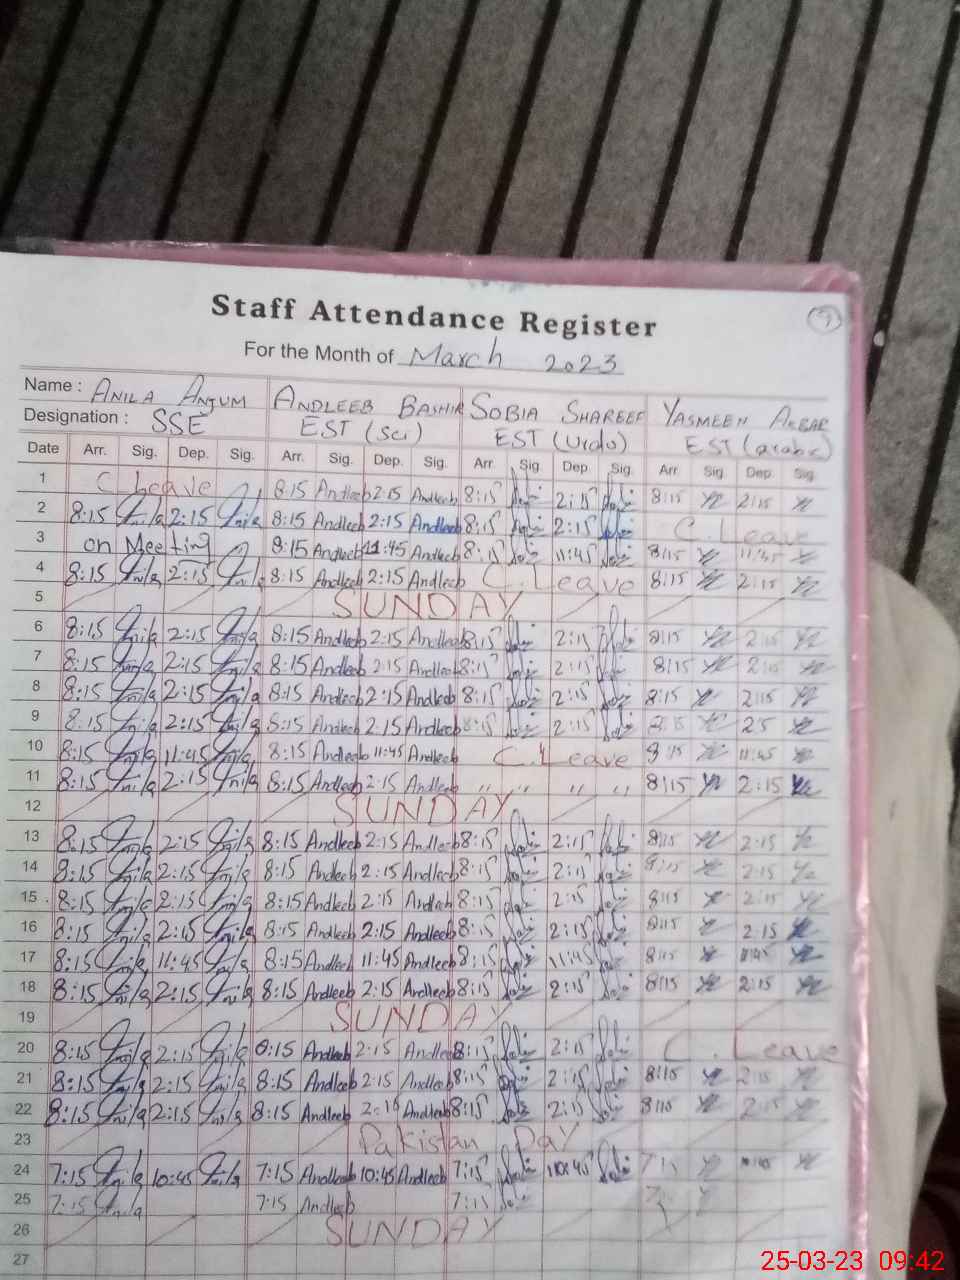 9
Staff Attendance Register
For the Month of March 2023
Name : ANILA ANJUM ANDLEEB BASHIR SOBIA SHAREEF YASMEEN AKBAR
Designation : SSE EST (Sci) EST (Urdu) EST (arabic)
Date Arr. Sig. Dep. Sig. Arr. Sig. Dep. Sig. Arr. Sig. Dep. Sig. Arr. Sig. Dep. Sig.
1 C Leave 8:15 Andleeb 2:15 Andleeb 8:15 2:15 8:15 2:15
2 8:15 2:15 8:15 Andleeb 2:15 Andleeb 8:15 2:15 C. Leave
3 on Meeting 8:15 Andleeb 11:45 Andleeb 8:15 11:45 8:15 11:45
4 8:15 2:15 8:15 Andleeb 2:15 Andleeb C. Leave 8:15 2:15
5 SUNDAY
6 8:15 2:15 8:15 Andleeb 2:15 Andleeb 8:15 2:15 8:15 2:15
7 8:15 2:15 8:15 Andleeb 2:15 Andleeb 8:15 2:15 8:15 2:15
8 8:15 2:15 8:15 Andleeb 2:15 Andleeb 8:15 2:15 8:15 2:15
9 8:15 2:15 8:15 Andleeb 2:15 Andleeb 8:15 2:15 8:15
10 8:15 11:45 8:15 Andleeb 11:45 Andleeb C. Leave 8:15 11:45
11 8:15 2:15 8:15 Andleeb 2:15 Andleeb " " " " 8:15 2:15
12 SUNDAY
13 8:15 2:15 8:15 Andleeb 2:15 Andleeb 8:15 2:15 8:15 2:15
14 8:15 2:15 8:15 Andleeb 2:15 Andleeb 8:15 2:15 8:15 2:15
15 8:15 2:15 8:15 Andleeb 2:15 Andleeb 8:15 2:15 8:15 2:15
16 8:15 2:15 8:15 Andleeb 2:15 Andleeb 8:15 2:15 8:15 2:15
17 8:15 11:45 8:15 Andleeb 11:45 Andleeb 8:15 11:45 8:15 11:45
18 8:15 2:15 8:15 Andleeb 2:15 Andleeb 8:15 2:15 8:15 2:15
19 SUNDAY
20 8:15 2:15 8:15 Andleeb 2:15 Andleeb 8:15 2:15 C. Leave
21 8:15 2:15 8:15 Andleeb 2:15 Andleeb 8:15 2:15 8:15 2:15
22 8:15 2:15 8:15 Andleeb 2:15 Andleeb 8:15 2:15 8:15 2:15
23 Pakistan DAY
24 7:15 10:45 7:15 Andleeb 10:45 Andleeb 7:15 10:45 7:15 10:45
25 7:15 7:15 Andleeb 7:15
26 SUNDAY
27
25-03-23 09:42